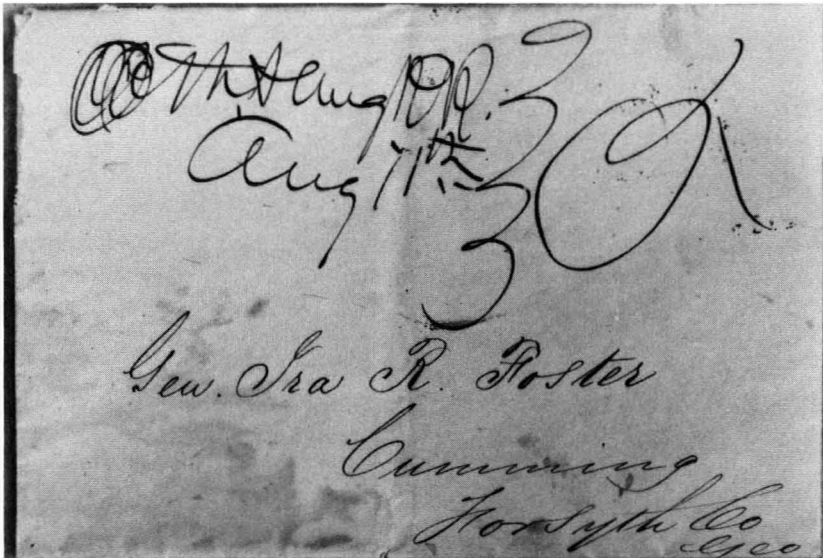 Aug R.R. 3
Aug 11th
3
Gen. Ira R. Foster
Cumming
Forsyth Co
Geo